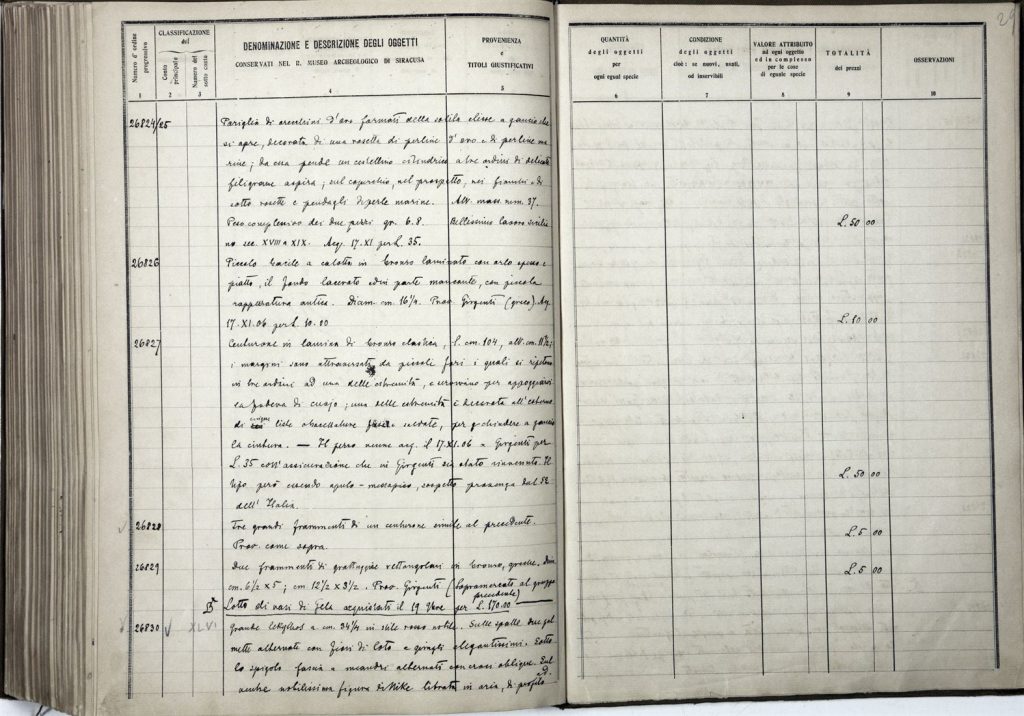 29
Numero d' ordine progressivo
CLASSIFICAZIONE del
Conto principale
Numero del sotto conto
DENOMINAZIONE E DESCRIZIONE DEGLI OGGETTI
CONSERVATI NEL R. MUSEO ARCHEOLOGICO DI SIRACUSA
PROVENIENZA
e
TITOLI GIUSTIFICATIVI
QUANTITÀ
degli oggetti
per
ogni egual specie
CONDIZIONE
degli oggetti
cioè: se nuovi, usati,
od inservibili
VALORE ATTRIBUITO
ad ogni oggetto
ed in complesso
per le cose
di eguale specie
TOTALITÀ
dei prezzi
OSSERVAZIONI
1 2 3 4 5 6 7 8 9 10
26824/25 Pariglia di orecchini d'oro formati della solila elisse a gancio che
si apre, decorata di una rosetta di perline d'oro e di perline ma
rine; da essa pende un cestellino cilindrico a tre ordini di delicate
filigrane a spira; sul coperchio, nel prospetto, nei fianchi e di
sotto rosette e pendagli di perle marine. Alt. mass. mm. 37.
Peso complessivo dei due pezzi gr. 6.8. Bellissimo lavoro sicilia L. 50 00
no sec. XVIII o XIX. Acq. 17.XI per L. 35.
26826 Piccolo bacile a calotta in bronzo laminato con orlo spesso e
piatto, il fondo lacerato ed in parte mancante, con piccola
rappezzatura antica. Diam. cm. 16 1/2. Prov. Girgenti (greco). Acq.
17.XI.06 per L. 10.00 L. 10 00
26827 Centurone in lamina di bronzo elastica, l. cm. 104, alt. cm. 11 1/2;
i margini sono attraversati da piccoli fori i quali si ripetono
in tre ordini ad una delle estremità, e servivano per appoggiarvi
la fodera di cuojo; una delle estremità è decorata all'esterno
di cinque liste per chiudere a gancio
la cintura. — Il pezzo venne acq. il 17.XI.06 a Girgenti per
L. 35 coll'assicurazione che in Girgenti sia stato rinvenuto. Il L. 50 00
tipo però essendo apulo-messapico, sospetto provenga dal SE
dell'Italia.
26828 Tre grandi frammenti di un centurone simile al precedente. L. 5 00
Prov. come sopra.
26829 Due frammenti di grattuggie rettangolari in bronzo, greche. Dim. L. 5 00
cm. 6 1/2 x 5; cm 12 1/2 x 3 1/2. Prov. Girgenti (Sopramercato al gruppo
precedente)
Lotto di vasi di Gela acquistati il 19 9bre per L. 170.00
26830 XLVI Grande lekythos a cm. 34 1/2 in stile rosso nobile. Sulle spalle due pal
mette alternate con fiori di loto e girigli elegantissimi. Sotto
lo spigolo fascia a meandri alternati con croci oblique. Sul
ventre nobilissima figura di Nike librata in aria, di profilo a D.